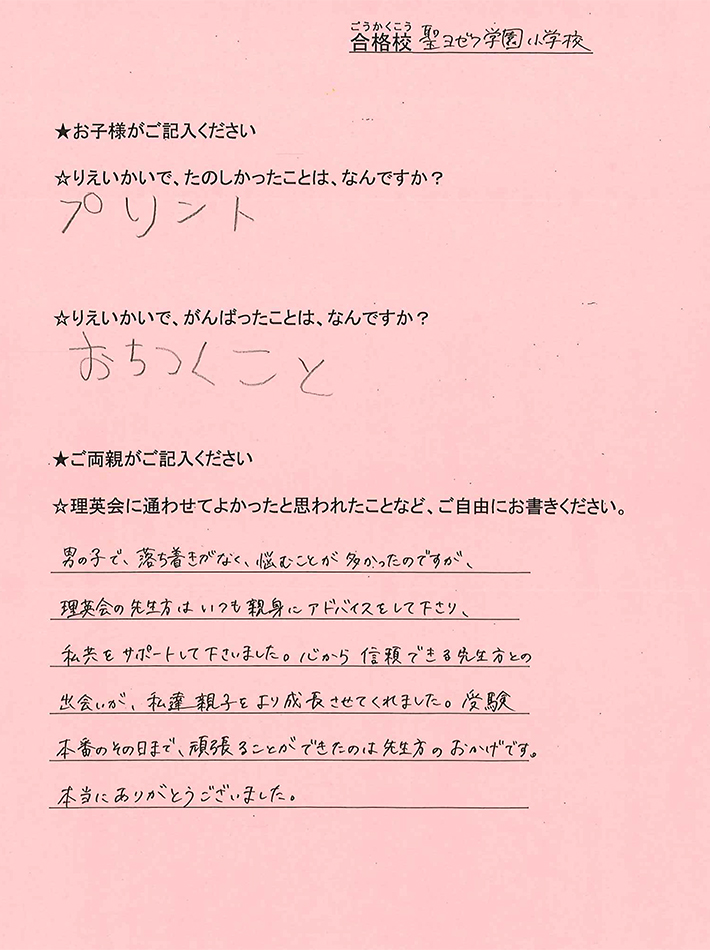 ごうかくこう
合格校 聖ヨゼフ学園小学校
★お子様がご記入ください
☆りえいかいで、たのしかったことは、なんですか？
プリント
☆りえいかいで、がんばったことは、なんですか？
おちつくこと
★ご両親がご記入ください
☆理英会に通わせてよかったと思われたことなど、ご自由にお書きください。
男の子で、落ち着きがなく、悩むことが多かったのですが、
理英会の先生方はいつも親身にアドバイスをして下さり、
私共をサポートして下さいました。心から信頼できる先生方との
出会いが、私達親子をより成長させてくれました。受験
本番のその日まで、頑張ることができたのは先生方のおかげです。
本当にありがとうございました。